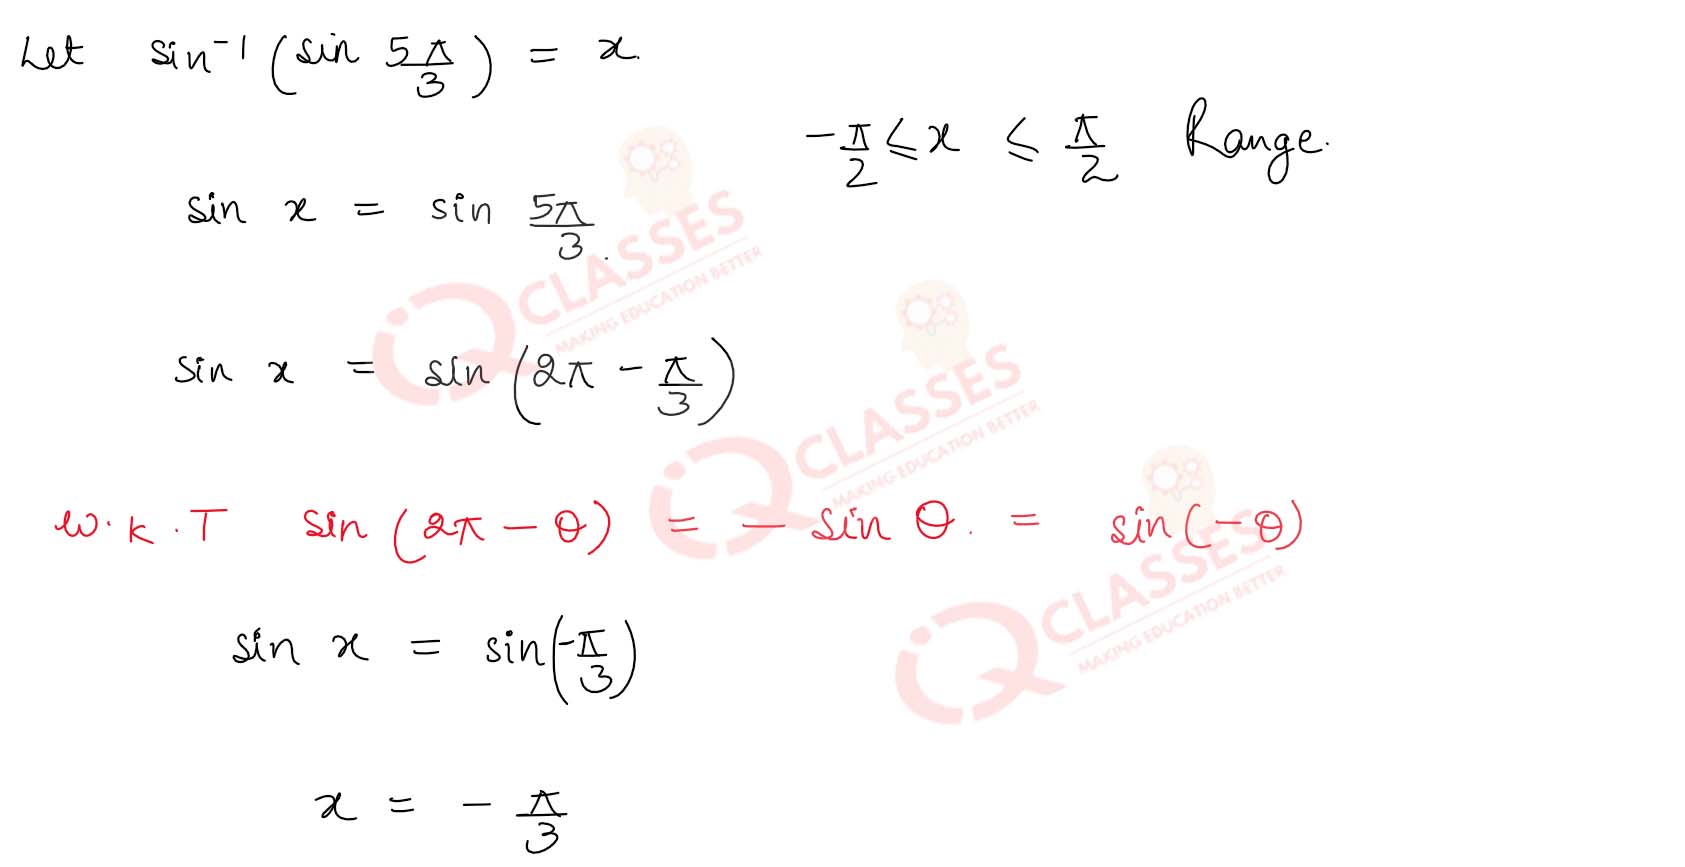 Let sin⁻¹(sin 5π/3) = x.
-π/2 ≤ x ≤ π/2 Range.
sin x = sin 5π/3.
sin x = sin(2π - π/3)
W.K.T sin(2π - θ) = - sin θ. = sin(-θ)
sin x = sin(-π/3)
x = - π/3
iQ CLASSES
MAKING EDUCATION BETTER
iQ CLASSES
MAKING EDUCATION BETTER
iQ CLASSES
MAKING EDUCATION BETTER